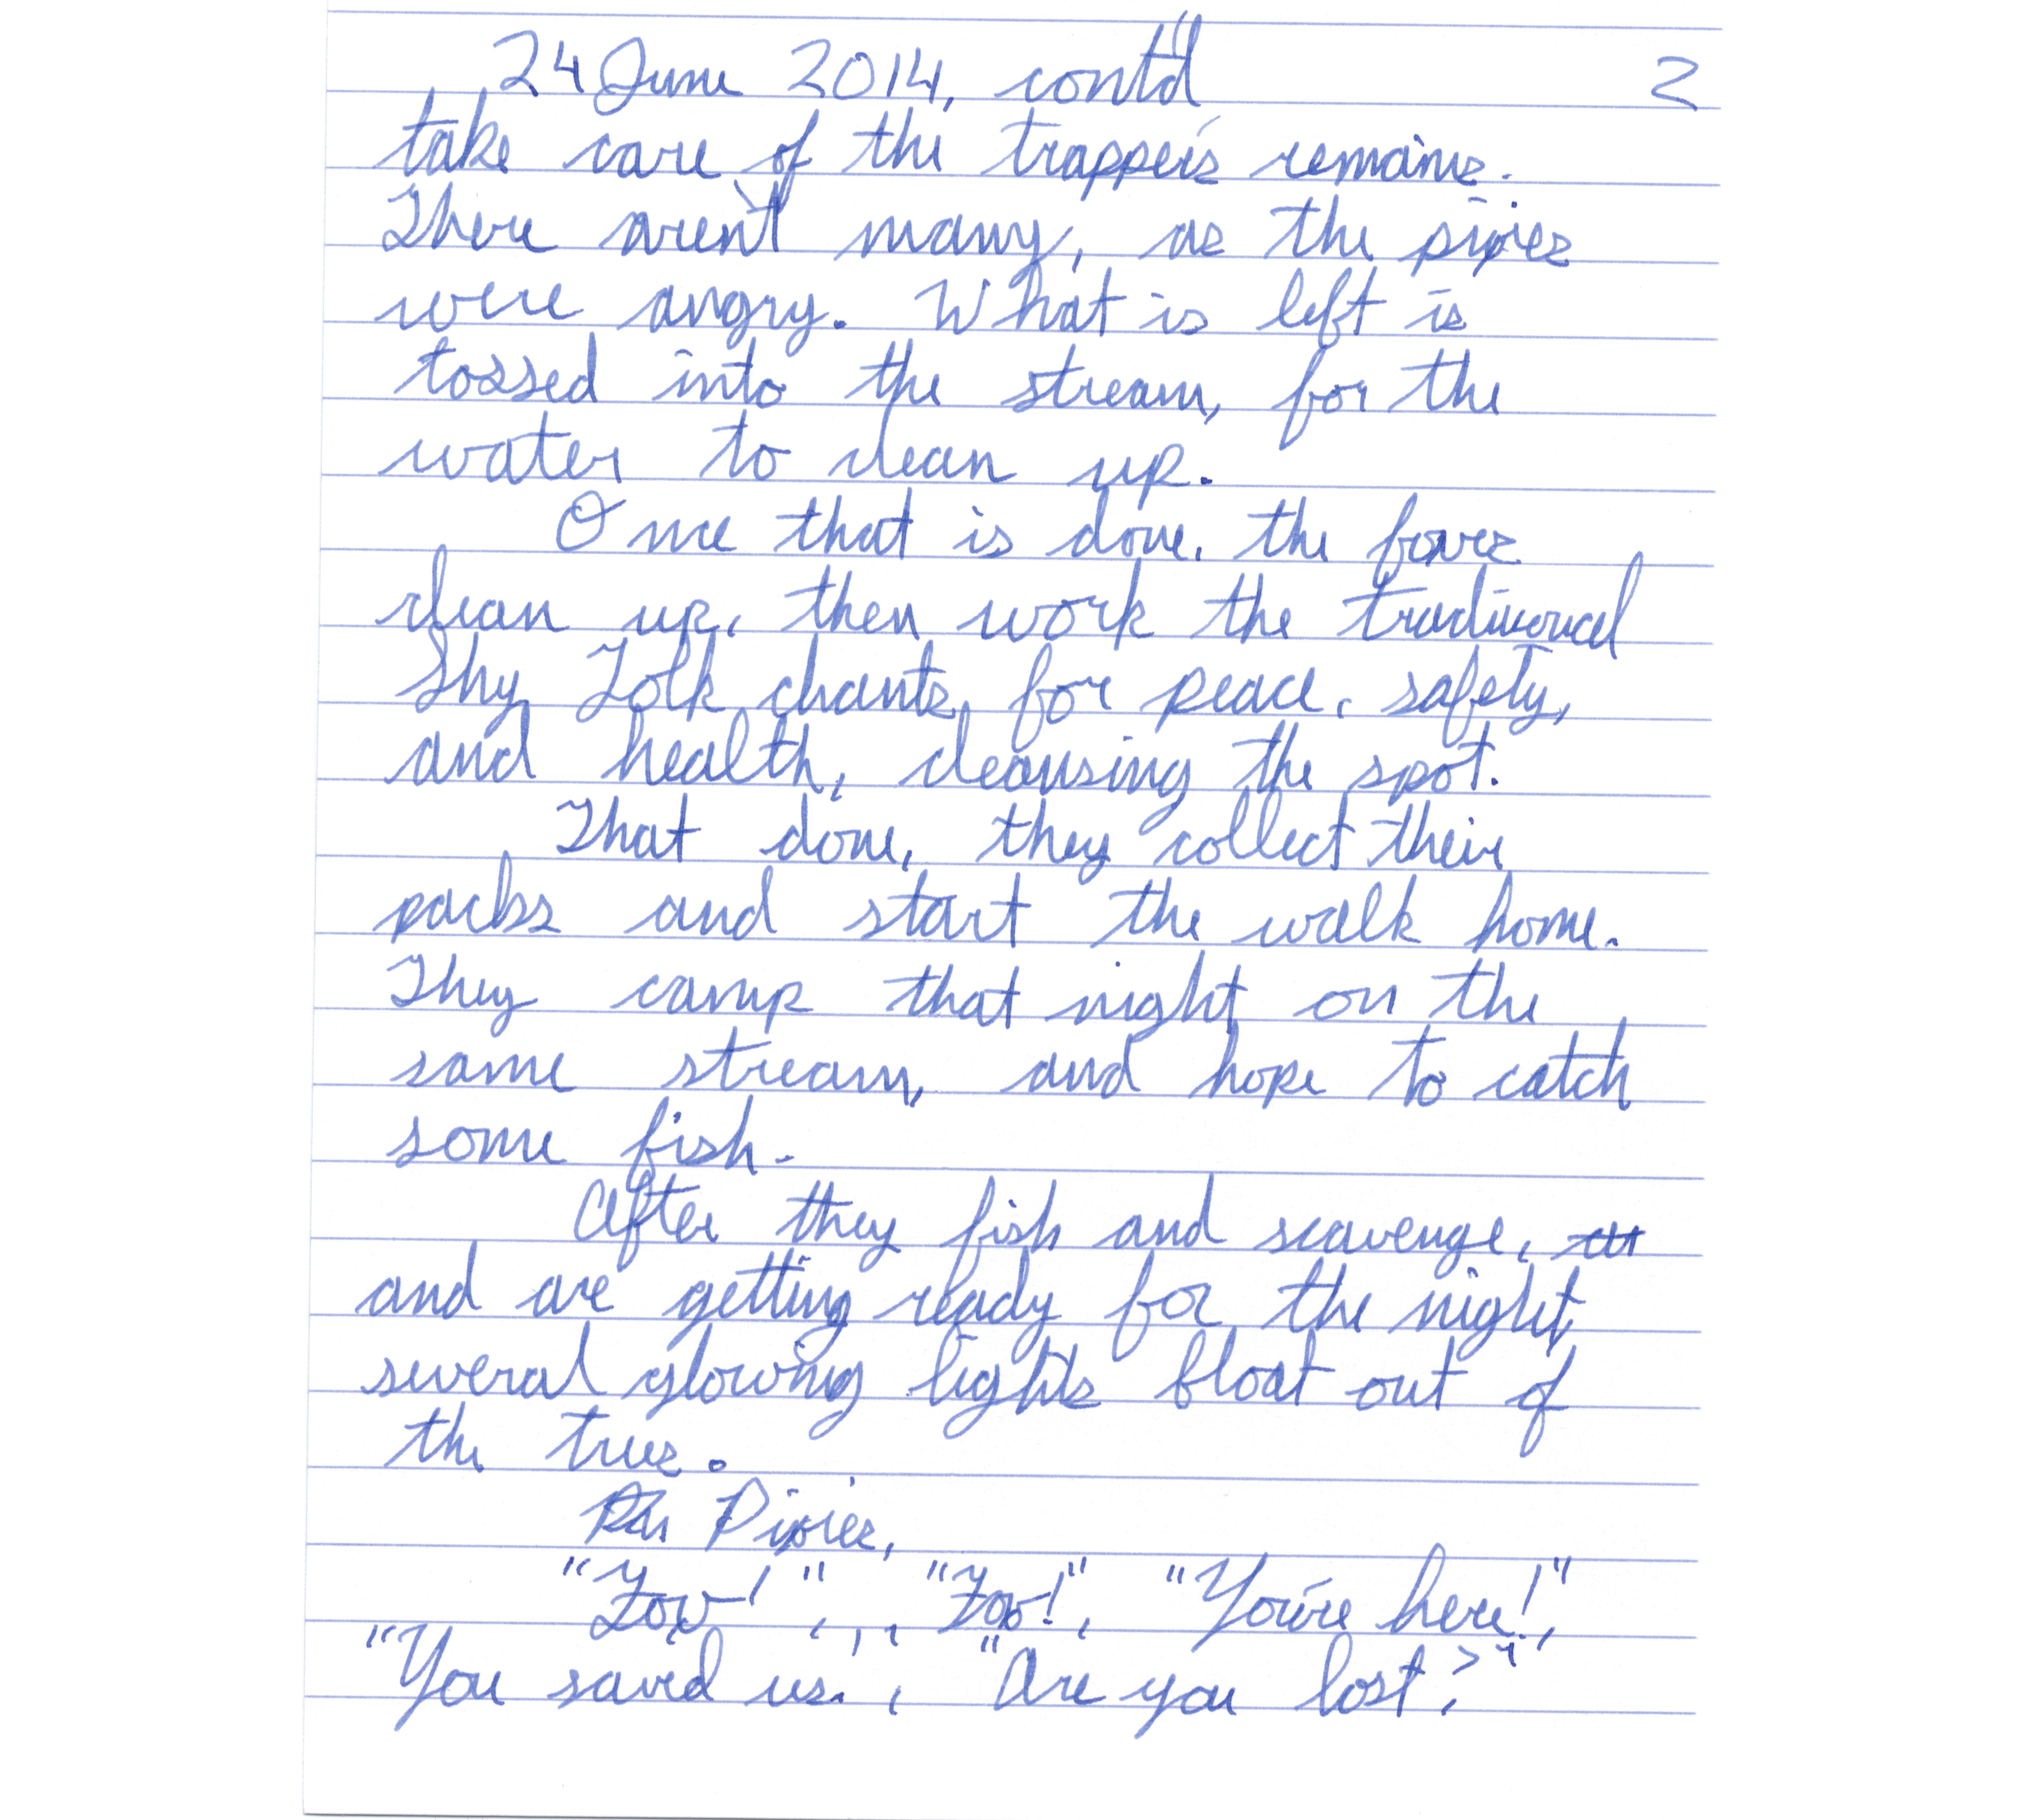 24 June 2014, cont'd 2
take care of the trapper's remains.
There aren't many, as the pixies
were angry. What is left is
tossed into the stream, for the
water to clean up.
Once that is done, the foxes
clean up, then work the traditional
Shy Folk chants for peace, safety,
and health, cleansing the spot.
That done, they collect their
packs and start the walk home.
They camp that night on the
same stream, and hope to catch
some fish.
After they fish and scavenge,
and are getting ready for the night,
several glowing lights float out of
the trees.
Pixies,
"Fox!", "Fox!", "You're here!",
"You saved us.", "Are you lost?"